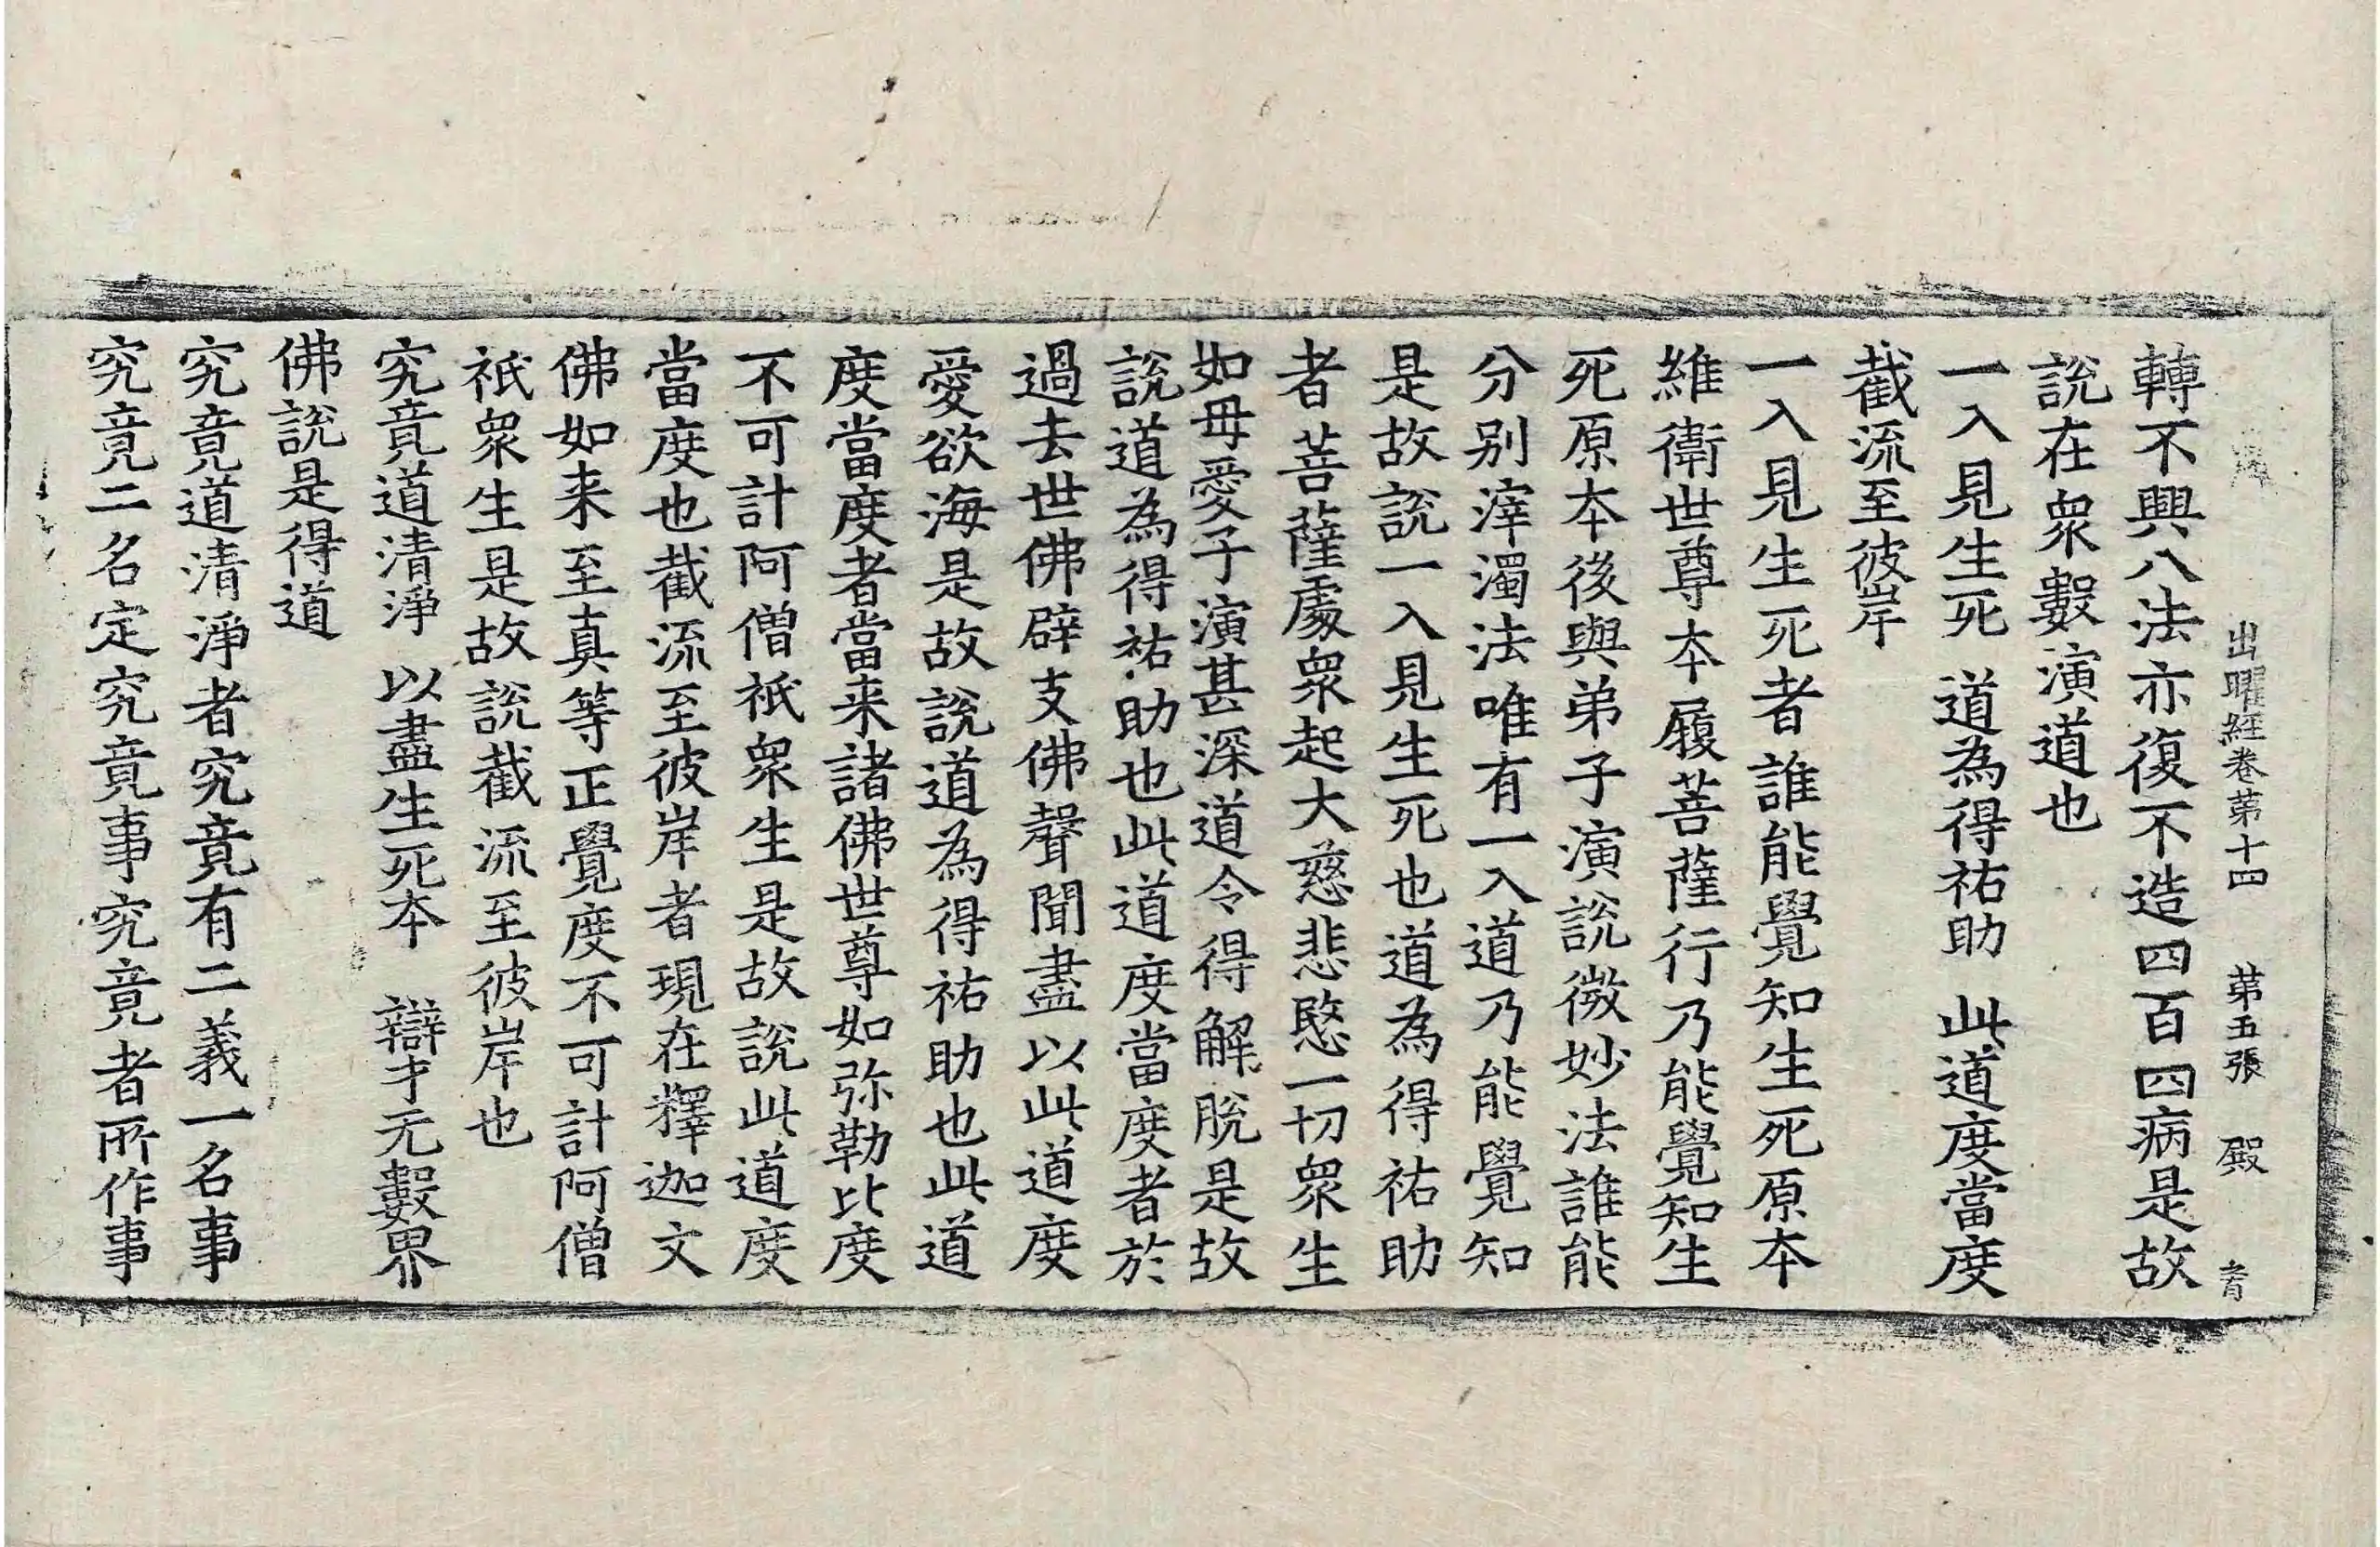 出曜経卷苐十四　苐五張　殿
轉不興八法亦復不造四百四病是故
說在衆數演道也
一入見生死　道為得祐助　此道度當度
截流至彼岸
一入見生死者誰能覺知生死原本
維衛世尊本履菩薩行乃能覺知生
死原本後與弟子演說微妙法誰能
分别滓濁法唯有一入道乃能覺知
是故說一入見生死也道為得祐助
者菩薩處衆起大慈悲愍一切衆生
如母愛子演甚深道令得解脫是故
說道為得祐助也此道度當度者於
過去世佛辟支佛聲聞盡以此道度
愛欲海是故說道為得祐助也此道
度當度者當来諸佛世尊如弥勒比度
不可計阿僧祇衆生是故說此道度
當度也截流至彼岸者現在釋迦文
佛如来至真等正覺度不可計阿僧
祇衆生是故說截流至彼岸也
究竟道清淨　以盡生死本　辯才无數界
佛說是得道
究竟道清淨者究竟有二義一名事
究竟二名定究竟事究竟者所作事